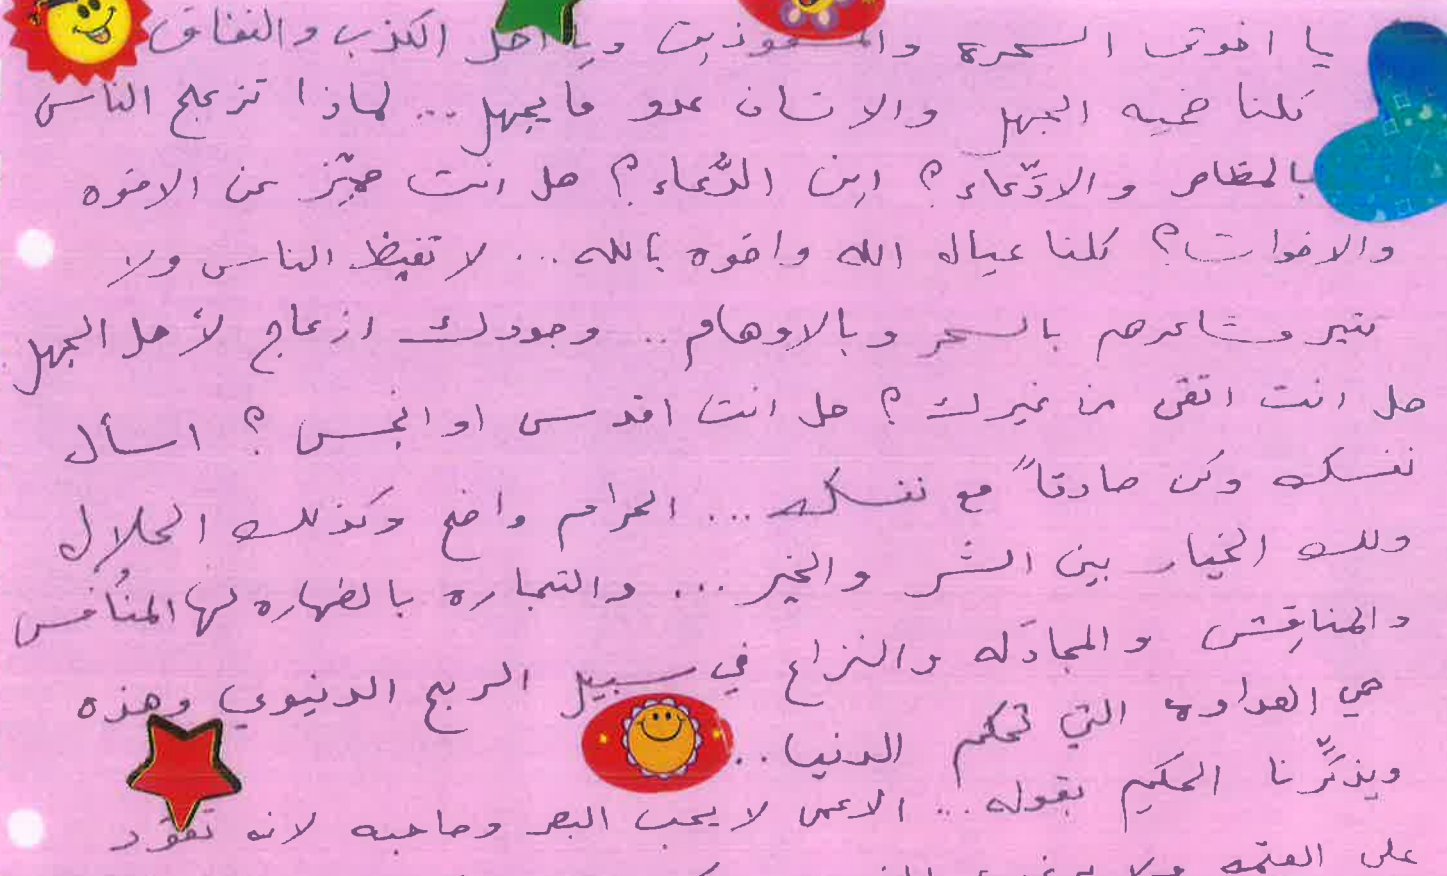 يا اخوتي السحره والمشعوذين ويا اهل الكذب والنفاق
كلنا ضحيه الجهل والانسان عدو ما يجهل... لماذا تزعج الناس
بالمظاهر والادّعاء؟ اين الدُّعاء؟ هل انت مميّز عن الاخوه
والاخوات؟ كلنا عيال الله واخوه بالله... لا تغيظ الناس ولا
تثير مشاعرهم بالسحر وبالاوهام.. وجودك ازعاج لأهل الجهل.
هل انت اتقى من غيرك؟ هل انت اقدس او انجس؟ اسأل
نفسك وكن صادقاً مع نفسك... الحرام واضح وكذلك الحلال
ولك الخيار بين الشر والخير... والتجاره بالطهاره لها المنُافس
والمناقِش والمجادَله والنزاع في سبيل الربح الدنيوي وهذه
هي العداوه التي تحكم الدنيا..
ويذكِّرنا الحكيم بقوله... الاعمى لا يحب البصر وصاحبه لانه تعَوّد
على العتمه ولا